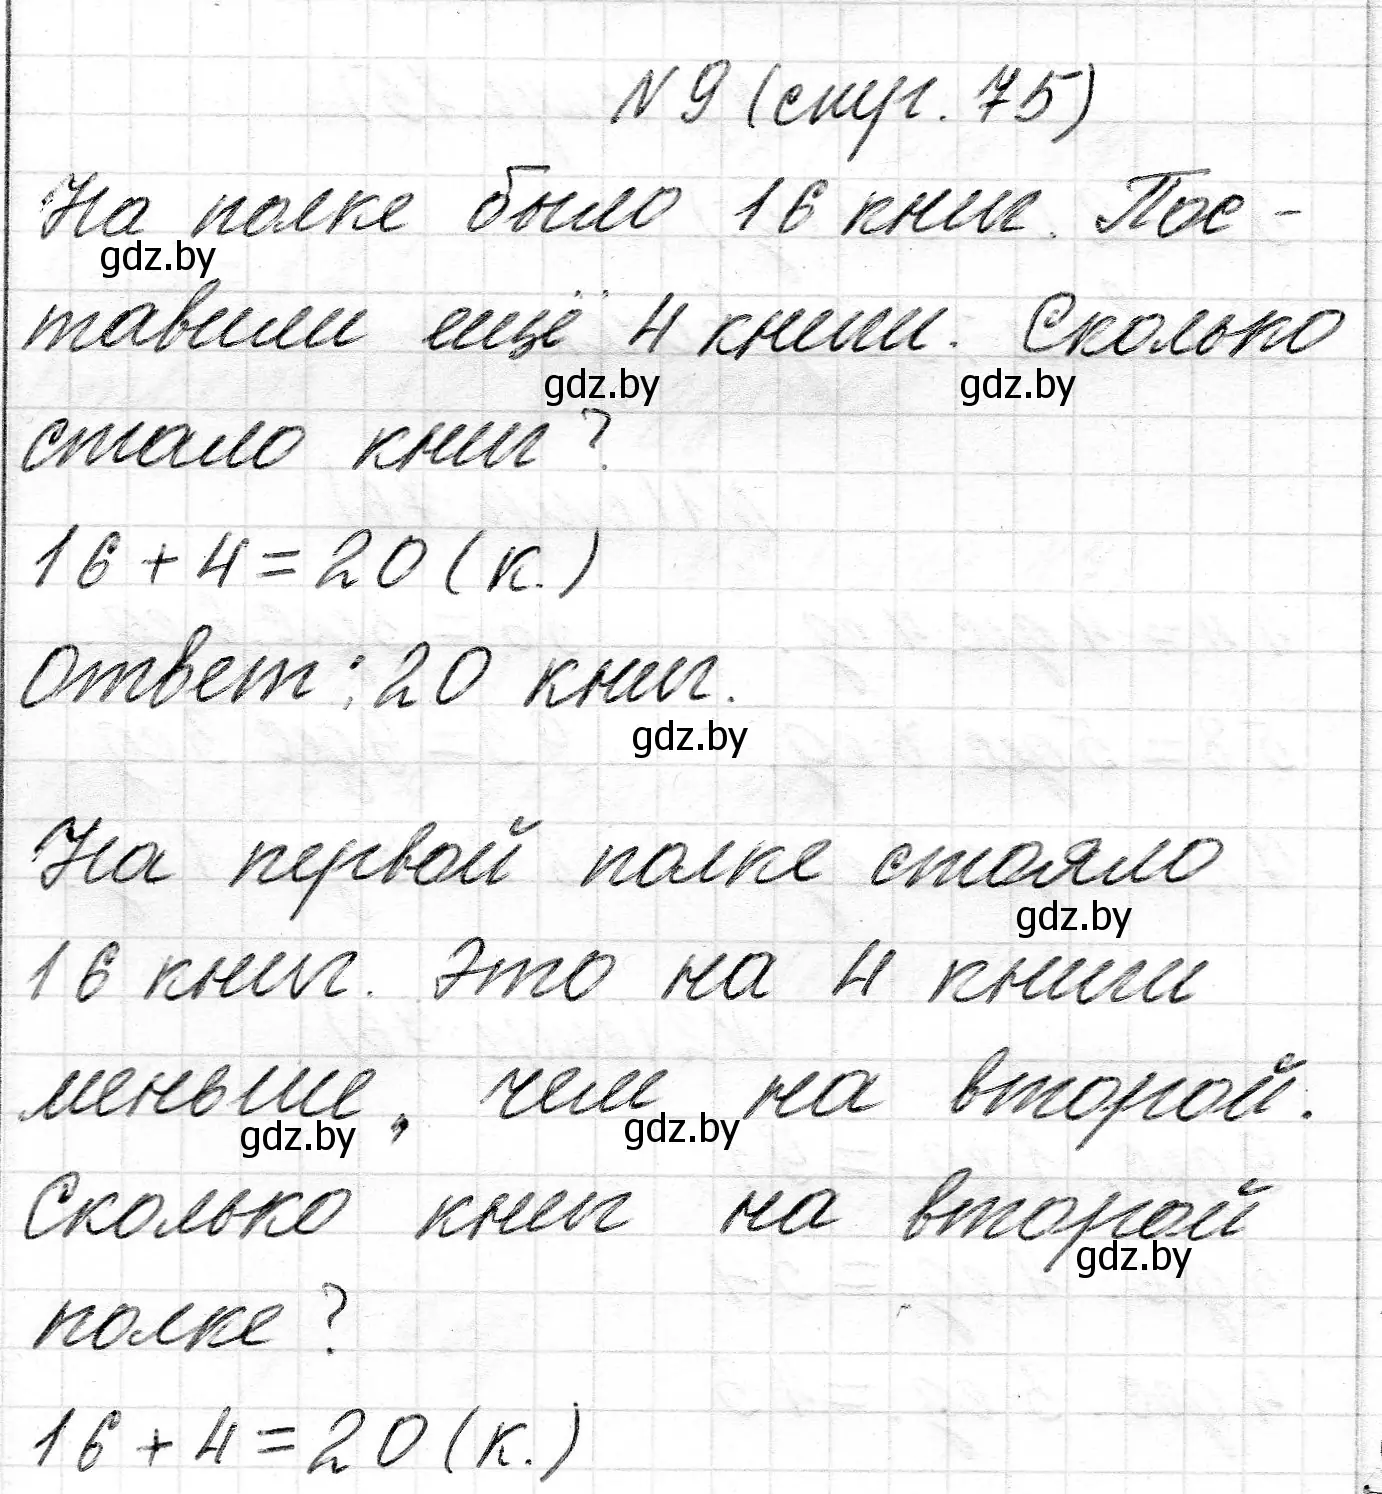 № 9 (стр. 75)
На полке было 16 книг. Пос-
gdz.by
тавили ещё 4 книги. Сколько
gdz.by gdz.by
стало книг?
16 + 4 = 20 (к.)
Ответ: 20 книг.
gdz.by
На первой полке стояло
gdz.by
16 книг. Это на 4 книги
меньше, чем на второй.
gdz.by gdz.by
Сколько книг на второй
gdz.by
полке?
16 + 4 = 20 (к.)